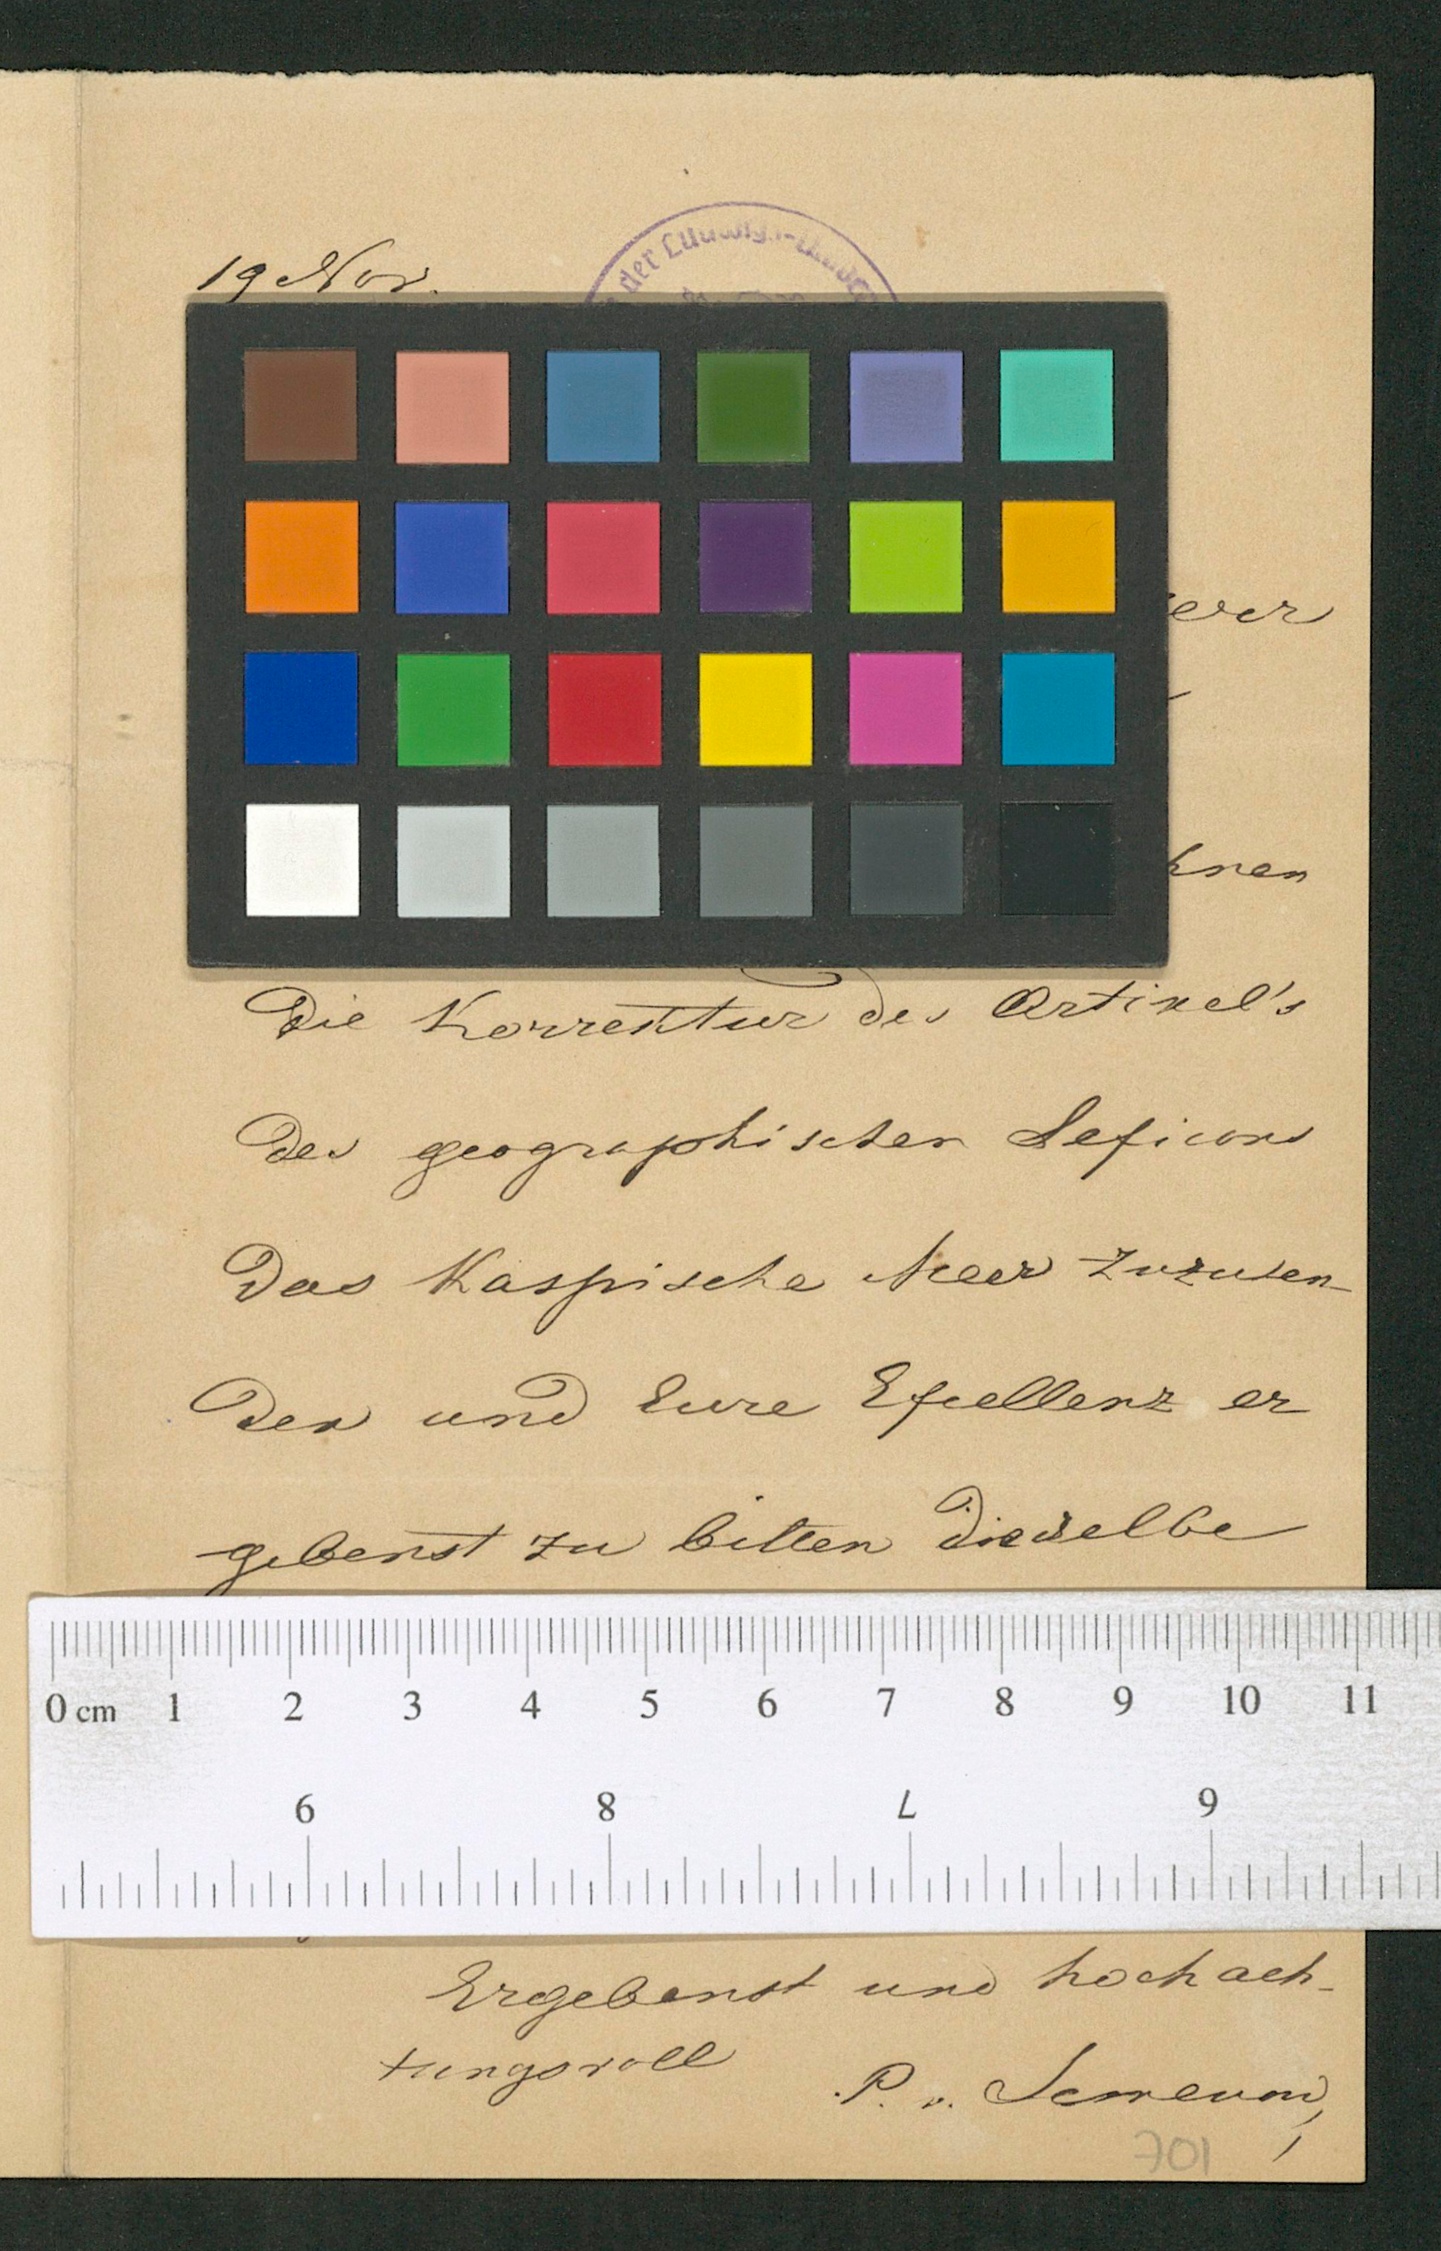 19 Nov.
der Ludwigs-Univer
erer
hnen
Die Korrektur des Artikel's
des geographischen Lexicons
Das Kaspische Meer zuzusen-
den und Eure Excellenz er
gebenst zu bitten dieselbe
0 cm 1 2 3 4 5 6 7 8 9 10 11
9 8 7 6
Ergebenst und hochach-
tungsvoll
P. v. Semenow
701